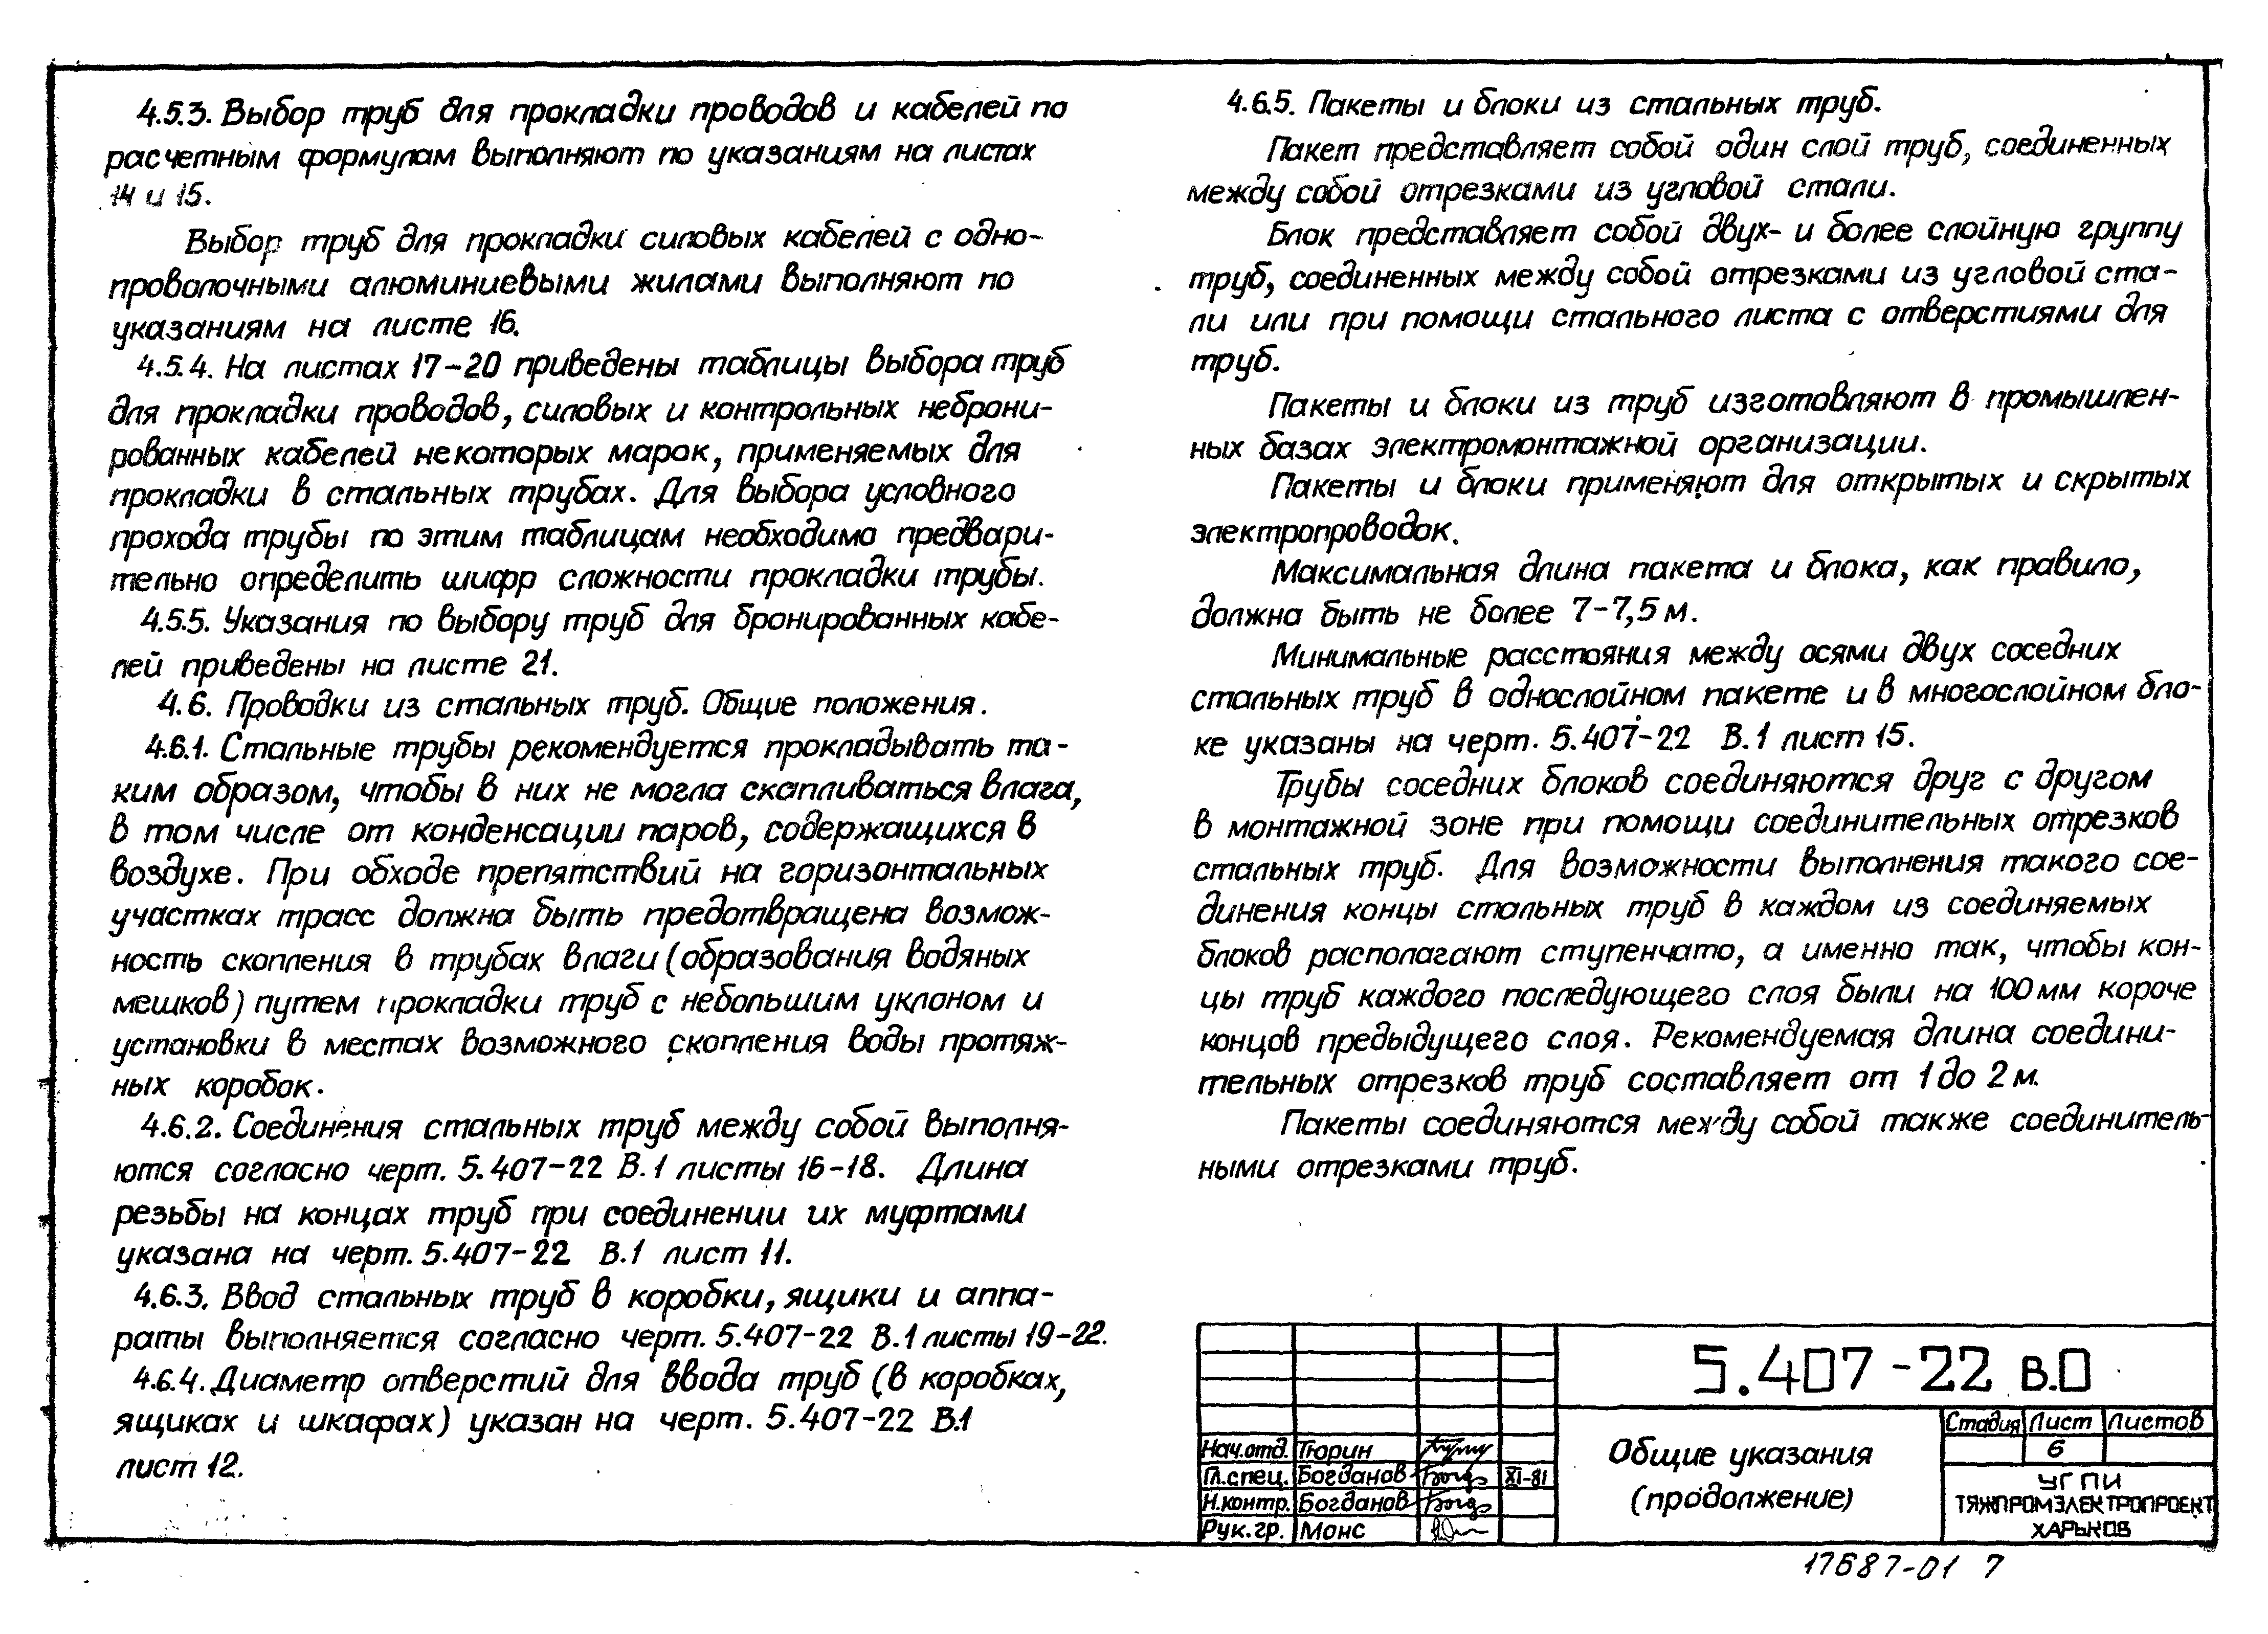 4.5.3. Выбор труб для прокладки проводов и кабелей по
расчетным формулам выполняют по указаниям на листах
14 и 15.
Выбор труб для прокладки силовых кабелей с одно-
проволочными алюминиевыми жилами выполняют по
указаниям на листе 16.
4.5.4. На листах 17-20 приведены таблицы выбора труб
для прокладки проводов, силовых и контрольных неброни-
рованных кабелей некоторых марок, применяемых для
прокладки в стальных трубах. Для выбора условного
прохода трубы по этим таблицам необходимо предвари-
тельно определить шифр сложности прокладки трубы.
4.5.5. Указания по выбору труб для бронированных кабе-
лей приведены на листе 21.
4.6. Проводки из стальных труб. Общие положения.
4.6.1. Стальные трубы рекомендуется прокладывать та-
ким образом, чтобы в них не могла скапливаться влага,
в том числе от конденсации паров, содержащихся в
воздухе. При обходе препятствий на горизонтальных
участках трасс должна быть предотвращена возмож-
ность скопления в трубах влаги (образования водяных
мешков) путем прокладки труб с небольшим уклоном и
установки в местах возможного скопления воды протяж-
ных коробок.
4.6.2. Соединения стальных труб между собой выполня-
ются согласно черт. 5.407-22 В.1 листы 16-18. Длина
резьбы на концах труб при соединении их муфтами
указана на черт. 5.407-22 В.1 лист 11.
4.6.3. Ввод стальных труб в коробки, ящики и аппа-
раты выполняется согласно черт. 5.407-22 В.1 листы 19-22.
4.6.4. Диаметр отверстий для ввода труб (в коробках,
ящиках и шкафах) указан на черт. 5.407-22 В.1
лист 12.
4.6.5. Пакеты и блоки из стальных труб.
Пакет представляет собой один слой труб, соединенных
между собой отрезками из угловой стали.
Блок представляет собой двух- и более слойную группу
труб, соединенных между собой отрезками из угловой ста-
ли или при помощи стального листа с отверстиями для
труб.
Пакеты и блоки из труб изготовляют в промышлен-
ных базах электромонтажной организации.
Пакеты и блоки применяют для открытых и скрытых
электропроводок.
Максимальная длина пакета и блока, как правило,
должна быть не более 7-7,5 м.
Минимальные расстояния между осями двух соседних
стальных труб в однослойном пакете и в многослойном бло-
ке указаны на черт. 5.407-22 В.1 лист 15.
Трубы соседних блоков соединяются друг с другом
в монтажной зоне при помощи соединительных отрезков
стальных труб. Для возможности выполнения такого сое-
динения концы стальных труб в каждом из соединяемых
блоков располагают ступенчато, а именно так, чтобы кон-
цы труб каждого последующего слоя были на 100 мм короче
концов предыдущего слоя. Рекомендуемая длина соедини-
тельных отрезков труб составляет от 1 до 2 м.
Пакеты соединяются между собой также соединитель-
ными отрезками труб.
5.407-22 В.0
Общие указания
(продолжение)
Стадия Лист Листов
6
УГПИ
ТЯЖПРОМЭЛЕКТРОПРОЕКТ
ХАРЬКОВ
Нач.отд. Тюрин
Гл.спец. Богданов XI-81
Н.контр. Богданов
Рук.гр. Монс
17687-01 7